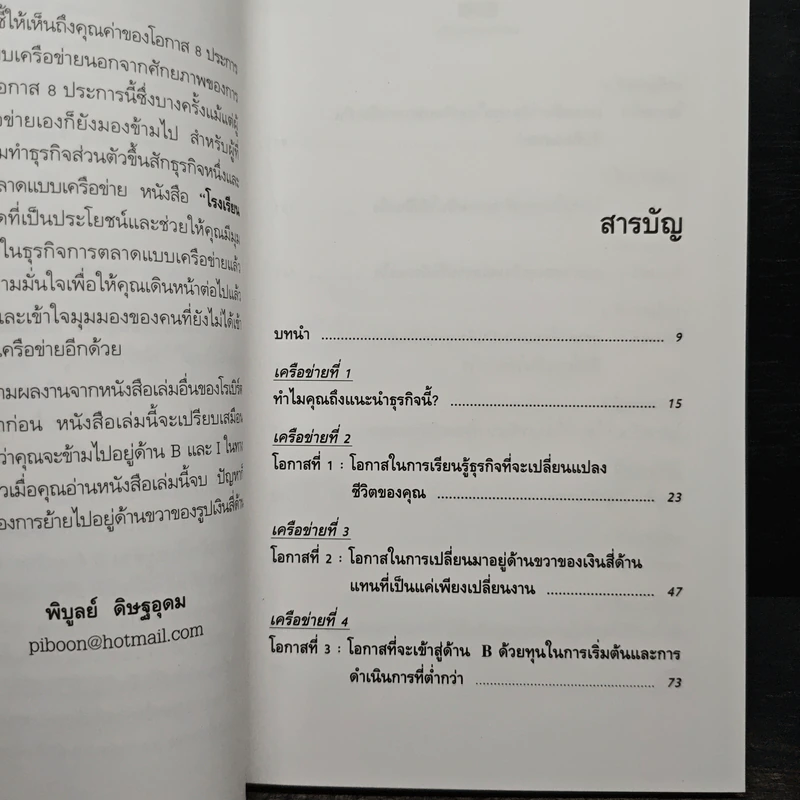 ชี้ให้เห็นถึงคุณค่าของโอกาส 8 ประการ
บบเครือข่ายนอกจากศักยภาพของการ
อกาส 8 ประการนี้ซึ่งบางครั้งแม้แต่ผู้
อข่ายเองก็ยังมองข้ามไป สำหรับผู้ที่
มทำธุรกิจส่วนตัวขึ้นสักธุรกิจหนึ่งและ
ลาดแบบเครือข่าย หนังสือ "โรงเรียน
ดที่เป็นประโยชน์และช่วยให้คุณมีมุม
ในธุรกิจการตลาดแบบเครือข่ายแล้ว
ามมั่นใจเพื่อให้คุณเดินหน้าต่อไปแล้ว
และเข้าใจมุมมองของคนที่ยังไม่ได้เข้า
เครือข่ายอีกด้วย
ามผลงานจากหนังสือเล่มอื่นของโรเบิร์ต
าก่อน หนังสือเล่มนี้จะเปรียบเสมือน
ว่าคุณจะข้ามไปอยู่ด้าน B และ I ในทาง
วเมื่อคุณอ่านหนังสือเล่มนี้จบ ปัญหาที่
องการย้ายไปอยู่ด้านขวาของรูปเงินสี่ด้าน
พิบูลย์ ดิษฐอุดม
piboon@hotmail.com
สารบัญ
บทนำ ........ 9
เครือข่ายที่ 1
ทำไมคุณถึงแนะนำธุรกิจนี้? ........ 15
เครือข่ายที่ 2
โอกาสที่ 1 : โอกาสในการเรียนรู้ธุรกิจที่จะเปลี่ยนแปลง
ชีวิตของคุณ ........ 23
เครือข่ายที่ 3
โอกาสที่ 2 : โอกาสในการเปลี่ยนมาอยู่ด้านขวาของเงินสี่ด้าน
แทนที่เป็นแค่เพียงเปลี่ยนงาน ........ 47
เครือข่ายที่ 4
โอกาสที่ 3 : โอกาสที่จะเข้าสู่ด้าน B ด้วยทุนในการเริ่มต้นและการ
ดำเนินการที่ต่ำกว่า ........ 73